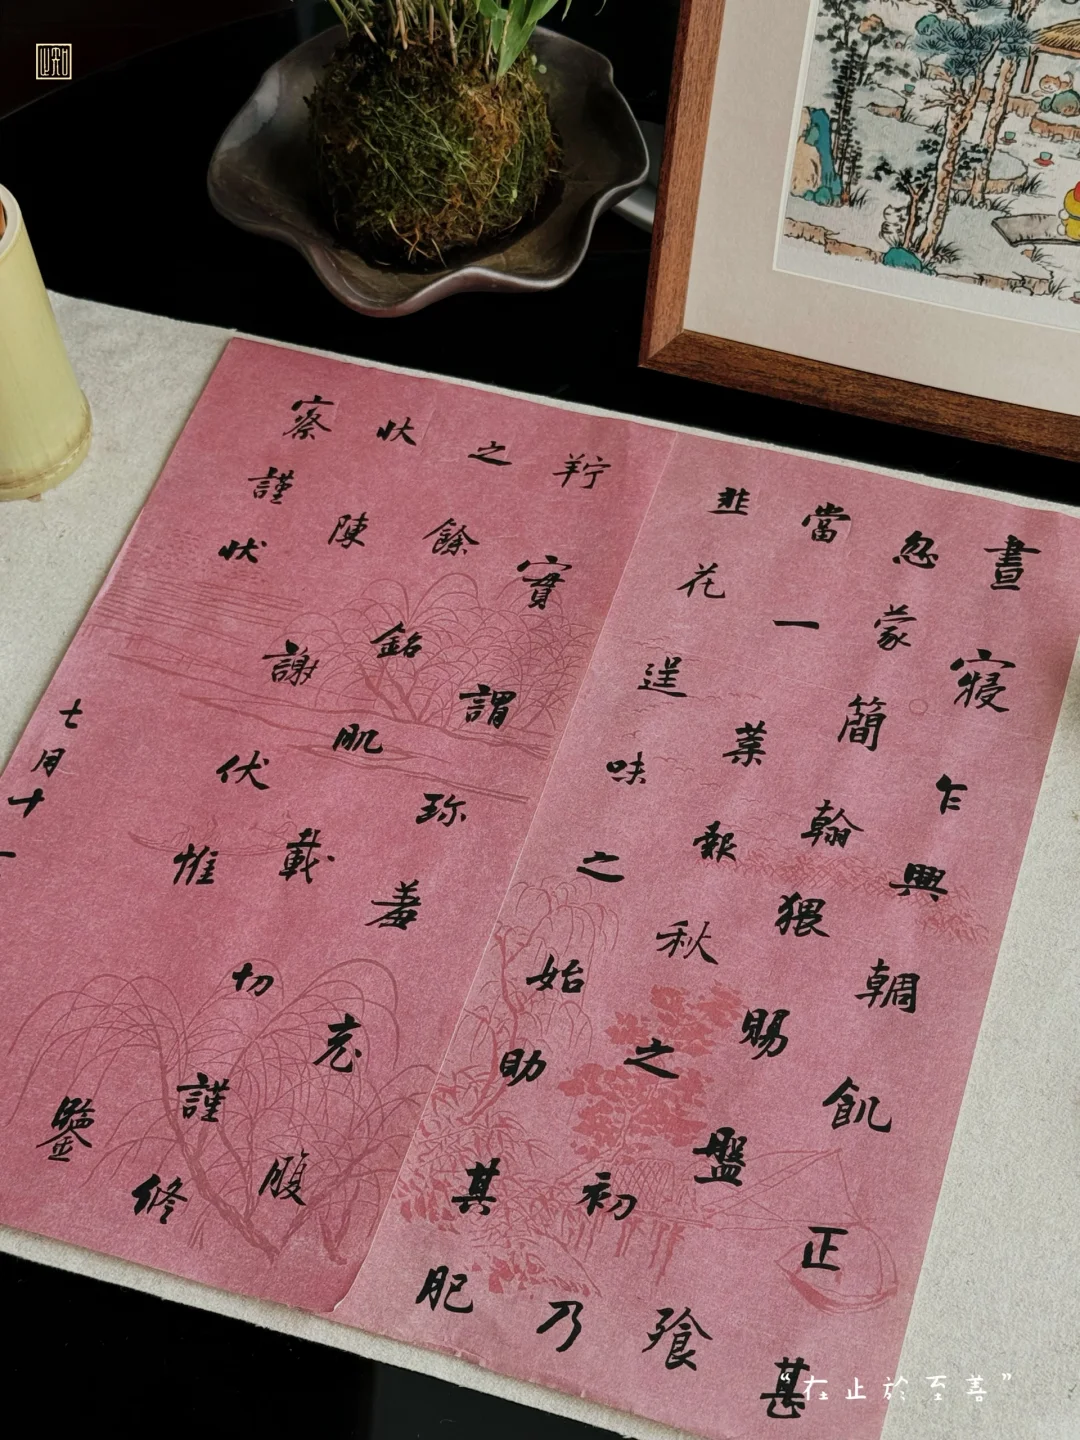 晝寢乍興輖飢正甚
忽蒙簡翰猥賜盤飧
當一葉報秋之初乃
韭花逞味之始助其肥
羜實謂珍羞充腹
之餘銘肌載切謹修
狀陳謝伏惟鑒
察謹狀
七月十一
“在止於至善”